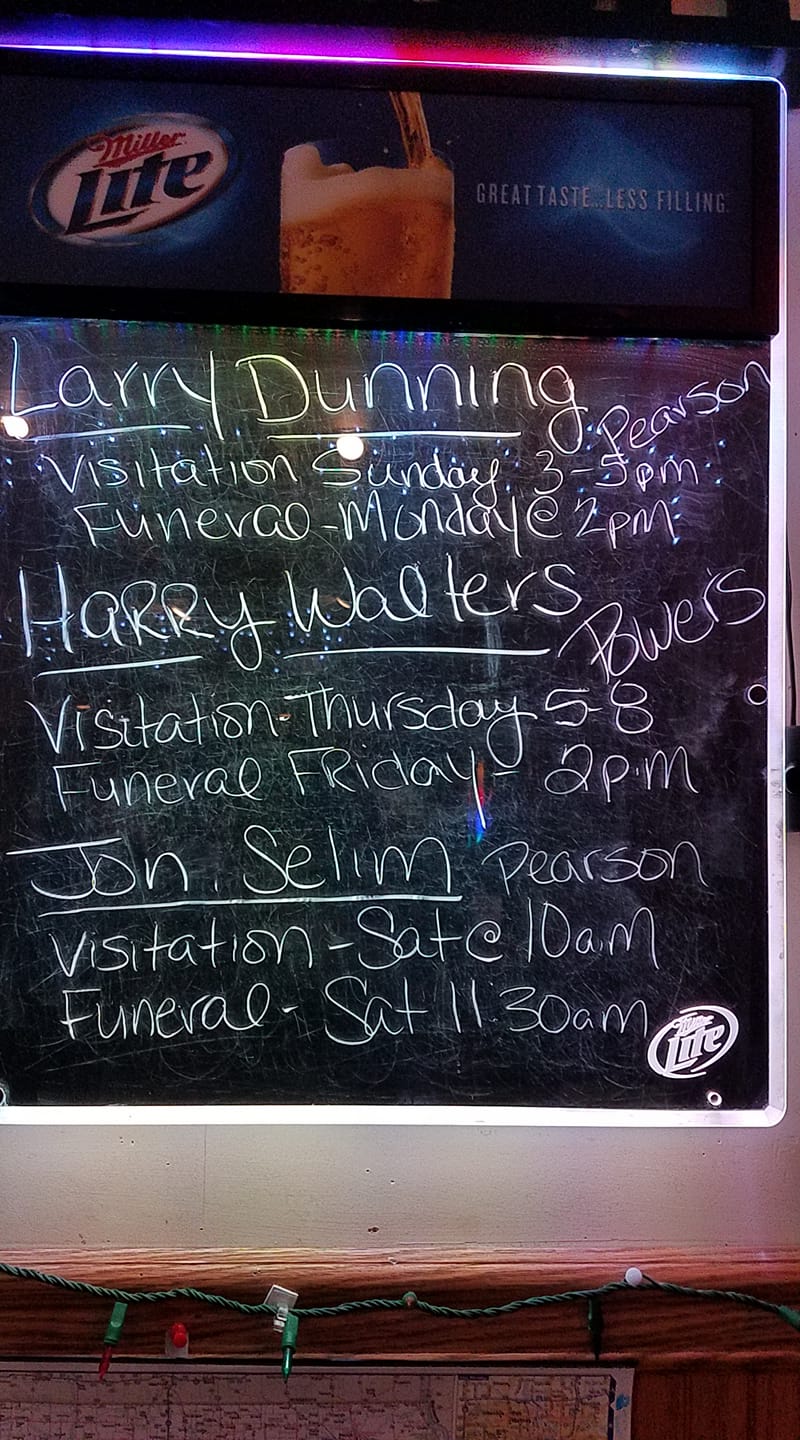 Miller
Lite
GREAT TASTE...LESS FILLING.
Larry Dunning Pearson
Visitation Sunday 3-5pm
Funeral - Monday @ 2pm
HaRRy Walters Powers
Visitation - Thursday 5-8
Funeral FRiday - 2p.m
Jon Selim Pearson
Visitation - Sat @ 10a.m
Funeral - Sat 11:30am
Miller
Lite